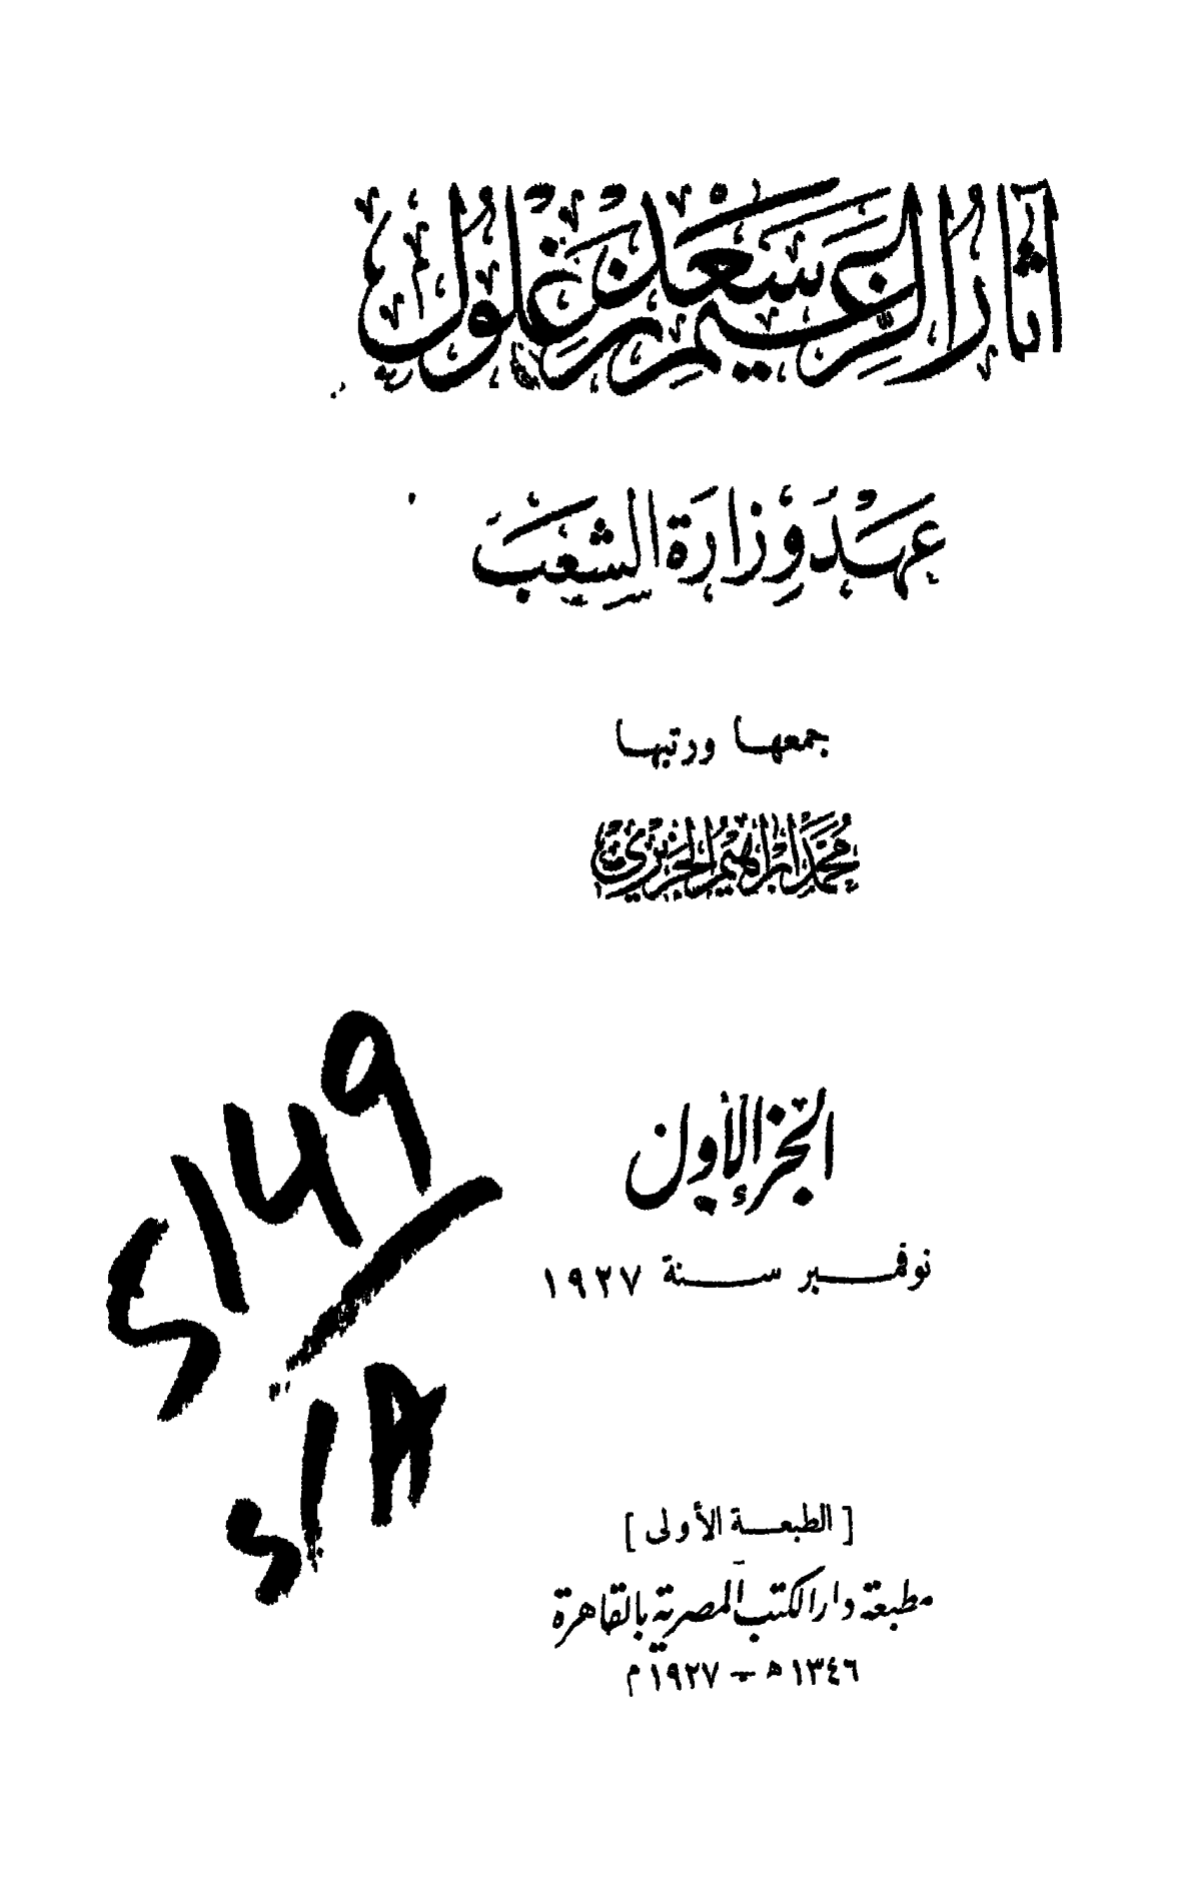 آثار الزعيم سعد زغلول
عهد وزارة الشعب
جمعها ورتبها
محمد ابراهيم الجزيرى
الجزء الأول
نوفمبر سنة ١٩٢٧
[ الطبعة الأولى ]
مطبعة دار الكتب المصرية بالقاهرة
١٣٤٦ ه - ١٩٢٧ م